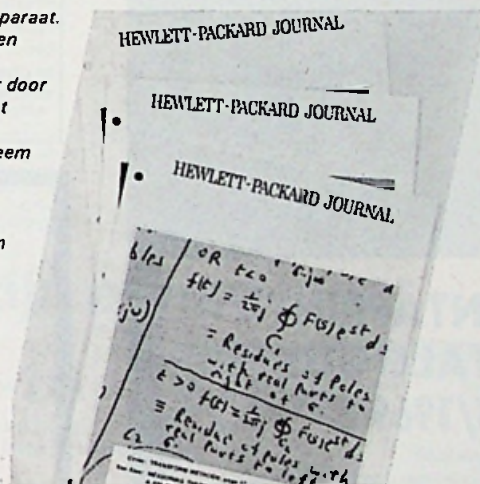 paraat.
en
door
t
eem
HEWLETT-PACKARD JOURNAL
HEWLETT-PACKARD JOURNAL
HEWLETT-PACKARD JOURNAL
bles
OR t<0
f(t) = 1/2πj ∮ F(s)e^st ds
C₁
= Residues of Poles
with real parts to
right of σ.
(jω)
t>0 f(t) = 1/2πj ∮ F(s)e^st ds
C₂
≡ Residue of poles with
real parts to left
C₂